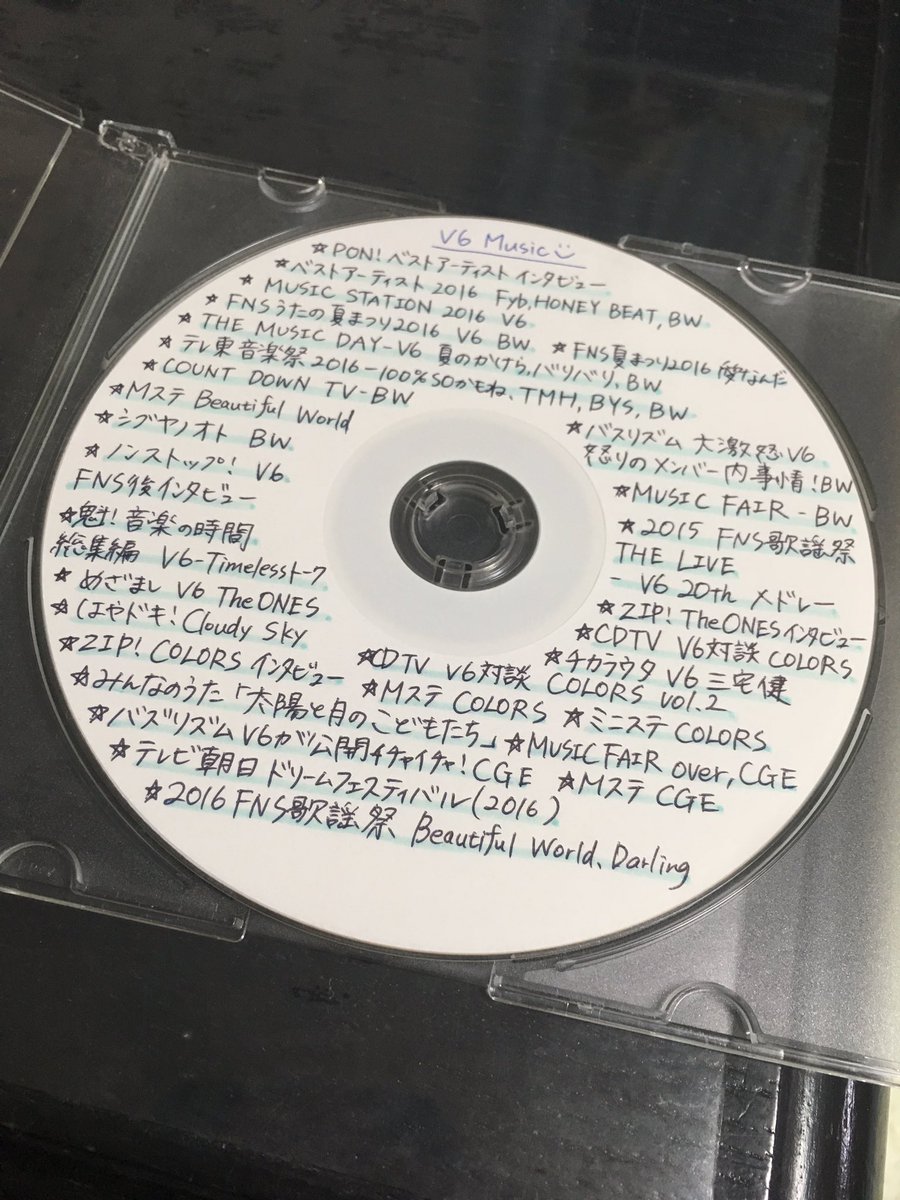 V6 Music
☆PON!ベストアーティストインタビュー
☆ベストアーティスト2016 Fyb,HONEY BEAT,BW
☆MUSIC STATION 2016 V6
☆FNSうたの夏まつり2016 V6 BW
☆FNS夏まつり2016 愛なんだ
☆THE MUSIC DAY-V6 夏のかけら,バリバリ,BW
☆テレ東音楽祭2016-100%SOかもね、TMH,BYS,BW
☆COUNT DOWN TV-BW
☆Mステ Beautiful World
☆シブヤノオト BW
☆ノンストップ! V6
FNS後インタビュー
☆魁!音楽の時間
総集編 V6-Timelessトーク
☆めざまし V6 TheONES
☆はやドキ!Cloudy Sky
☆ZIP! COLORSインタビュー
☆バズリズム 大激怒V6
怒りのメンバー内事情!BW
☆MUSIC FAIR-BW
☆2015 FNS歌謡祭
THE LIVE
-V6 20th メドレー
☆ZIP! TheONESインタビュー
☆CDTV V6対談 COLORS
☆チカラウタ V6三宅健
☆CDTV V6対談 COLORS vol.2
☆みんなのうた「太陽と月のこどもたち」
☆Mステ COLORS
☆ミニステ COLORS
☆バズリズムV6が公開イチャイチャ!CGE
☆MUSIC FAIR over,CGE
☆テレビ朝日ドリームフェスティバル(2016)
☆Mステ CGE
☆2016 FNS歌謡祭 Beautiful World、Darling